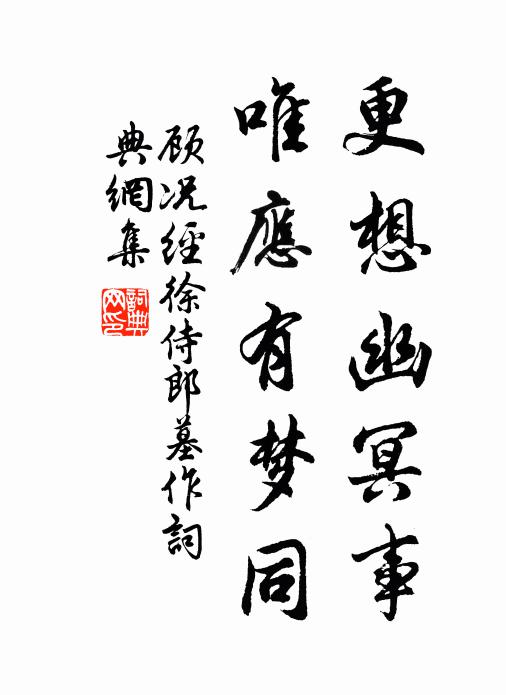 更想幽冥事
唯應有梦同
顾况经徐侍郎墓作詞
典網集
詞典网印